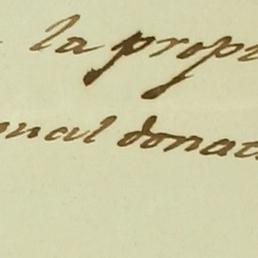 la prop
nual donat